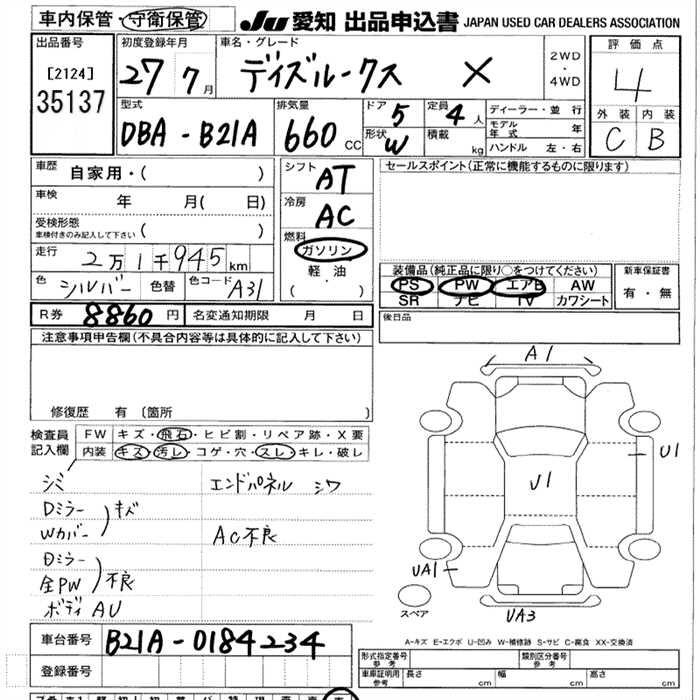 車内保管・守衛保管 JU 愛知 出品申込書 JAPAN USED CAR DEALERS ASSOCIATION
出品番号 初度登録年月 車名・グレード 評価点
[2124] 27 7月 デイズルークス X 2WD・4WD 4
35137 型式 排気量 ドア 5 定員 4人 ディーラー・並行 外装 内装
DBA-B21A 660cc 形状 W 積載 kg モデル年式 年 C B
ハンドル 左・右
車歴 自家用・( ) シフト AT セールスポイント(正常に機能するものに限ります)
車検 年 月( 日) 冷房 AC
受検形態 車検付きのみ記入して下さい ( ) 燃料
走行 2万1千945km ガソリン
軽油
( )
装備品(純正品に限り○をつけてください) 新車保証書
色 シルバー 色替 色コード A31 PS PW エアB AW 有・無
SR ナビ TV カワシート
R券 8860円 名変通知期限 月 日 後日品
注意事項申告欄(不具合内容等は具体的に記入して下さい)
修復歴 有 〔箇所 〕
検査員記入欄 FW キズ・飛石・ヒビ割・リペア跡・X要
内装 キズ・汚レ・コゲ・穴・スレ・キレ・破レ
シミ エンドパネル シワ
Dミラー
Wカバー ) キズ AC不良
Dミラー
全PW ) 不良
ボディ AU
A1
U1
U1
UA1
UA3
スペア
A-キズ E-エクボ U-凹み W-補修跡 S-サビ C-腐食 XX-交換済
車台番号 B21A-0184234
登録番号
形式指定番号 参考 類別区分番号 参考
車庫証明用 参考 長さ cm 幅 cm 高さ cm